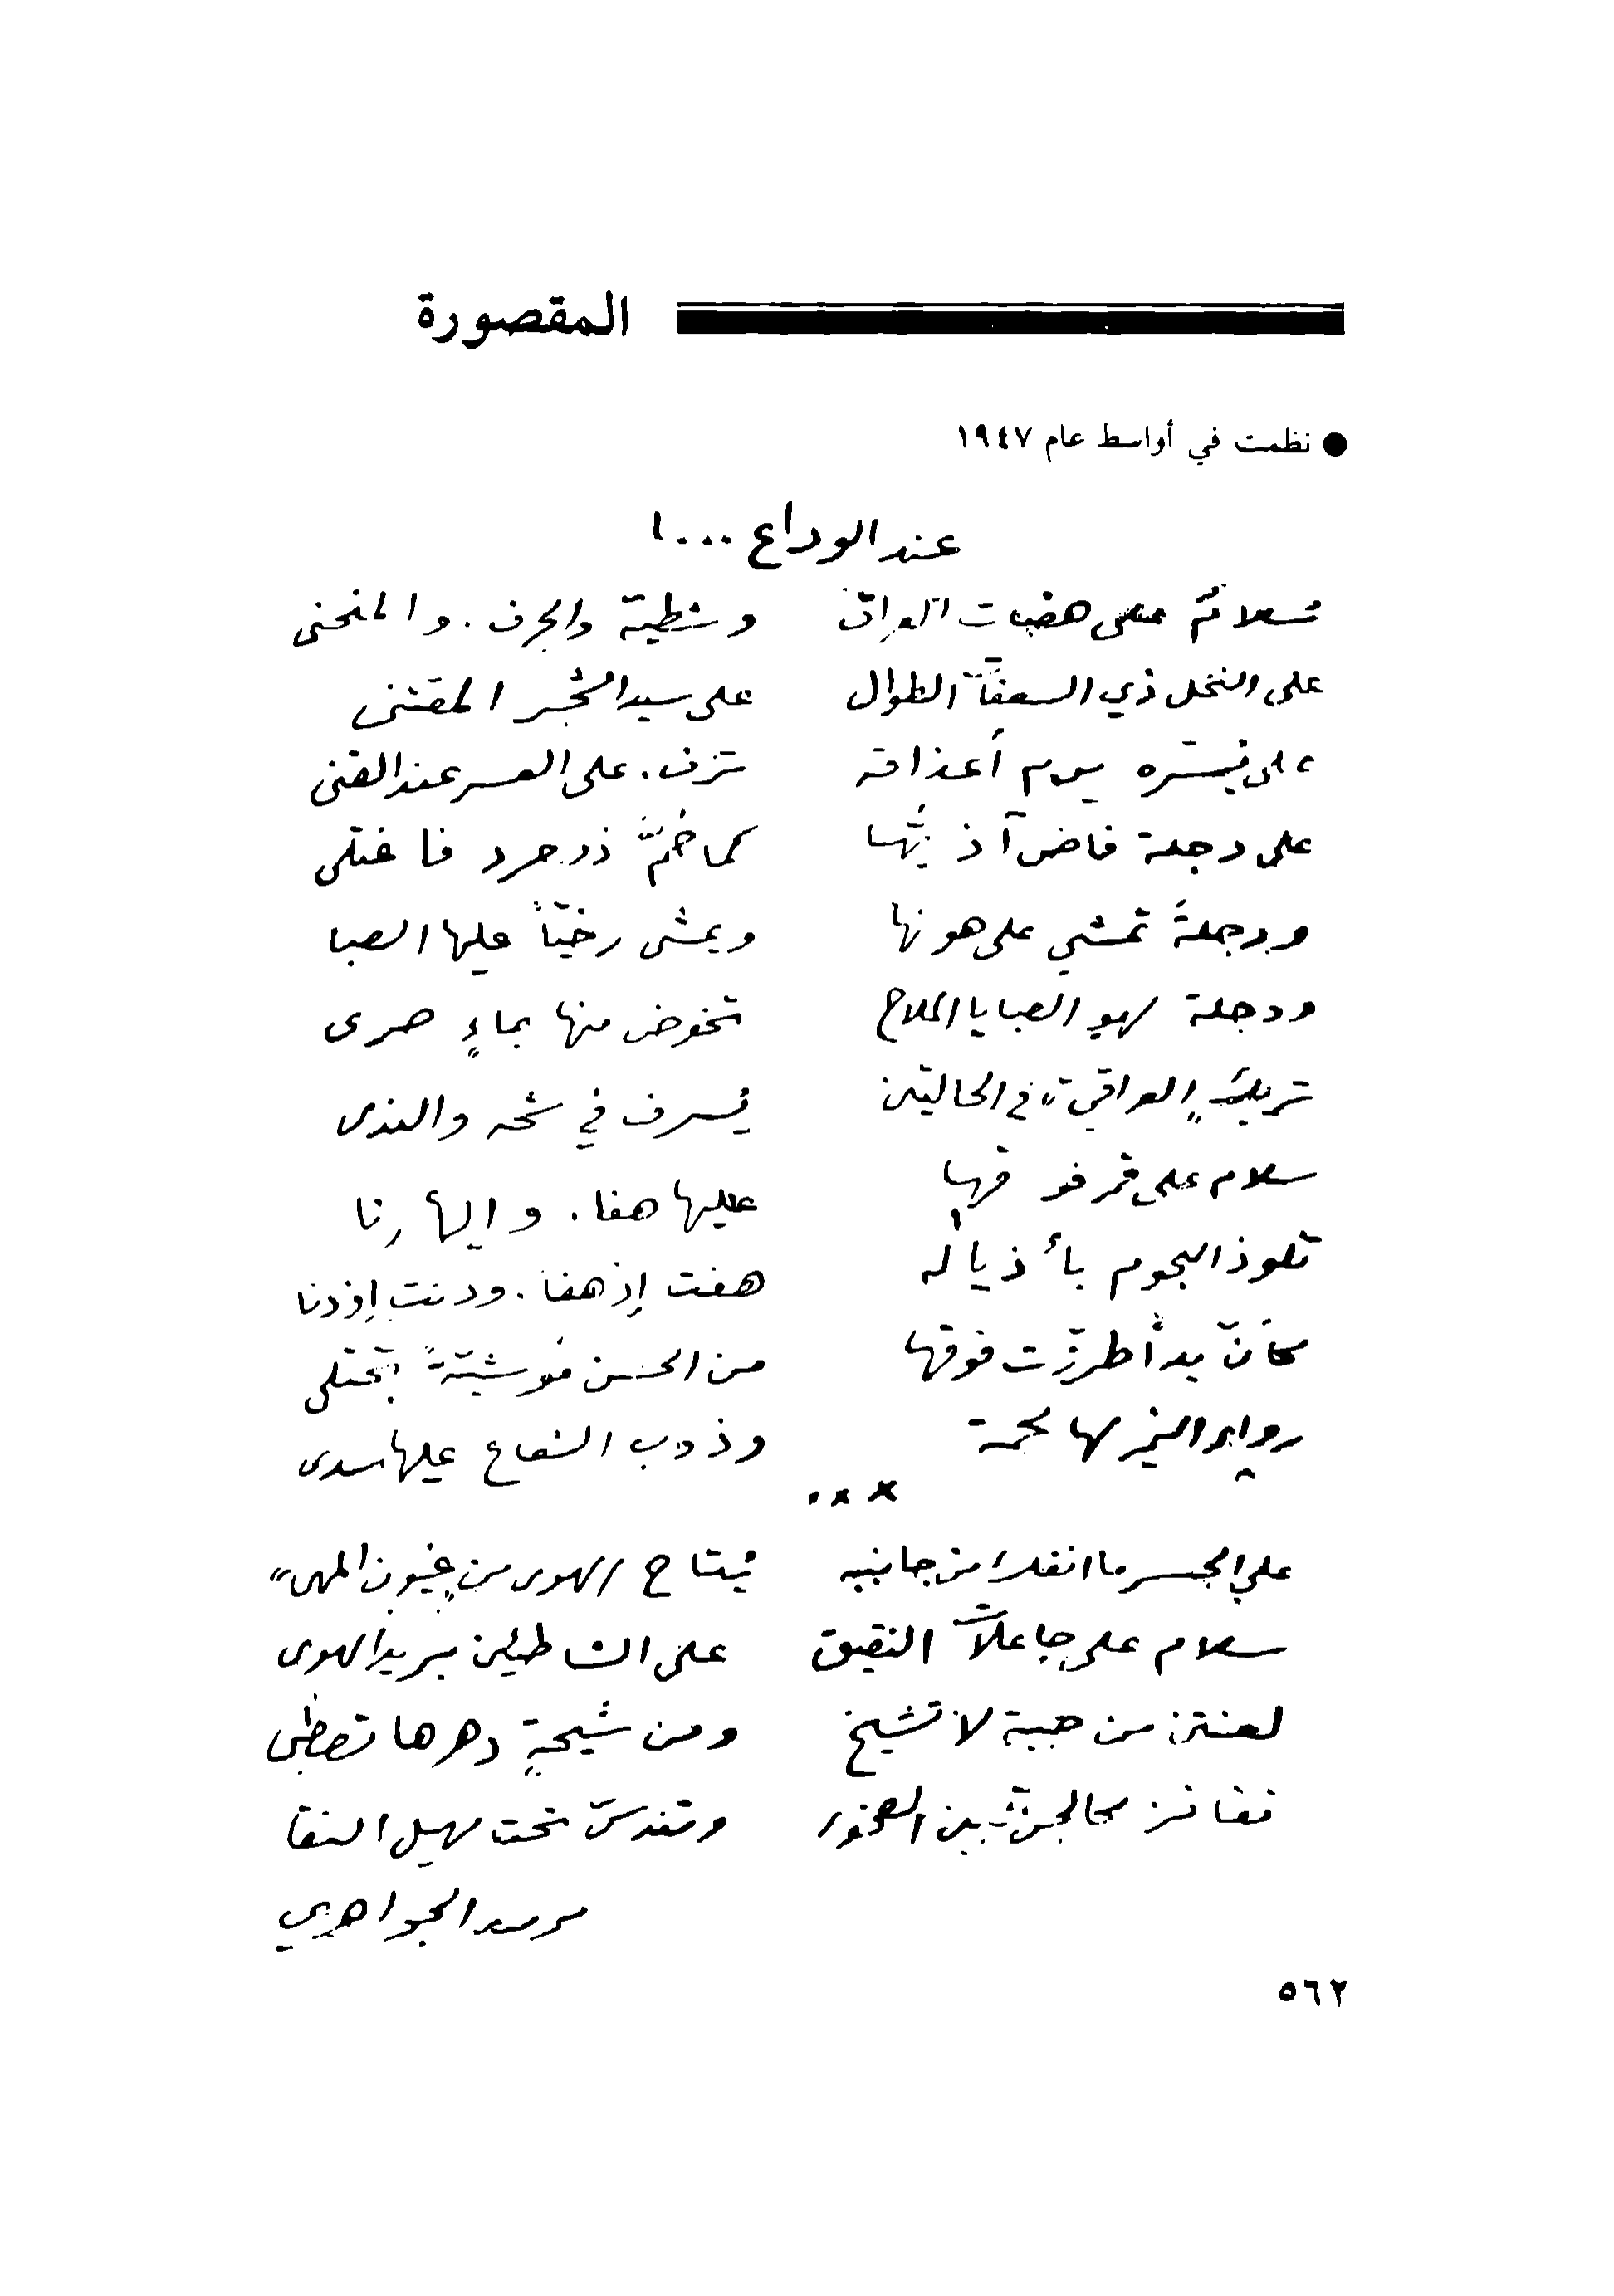 المقصورة
● نظمت في أواسط عام ١٩٤٧
عند الوداع ...!
سَلامٌ على هضبات العراق وشطيه والجرف . والمنحنى
على النخل ذي السعفات الطوال على سيد الشجر المقتنى
على يسره يوم أعذاقه تزف . على العسر عند القنى
على دجلة فاض آذيُّها كما حُمَّ ذو حرد فاغتلى
ودجلةَ تمشي على هونها ويمشي رخيّاً عليها الصبا
ودجلة لهو الصبايا الملاح تخوض منها بماءٍ صرى
تريك "العراقيَّ" في الحالتين يُسرف في شحه والندى
سلام على قمر فوقها عليها هفا . وإليها رنا
تلوذ النجوم بأذياله هفت إذ هفا . ودنت إذ دنا
كأنّ يداً طرزت فوقها من الحسن مُوشيّةً تجتلى
رواء النمير لها لحمة وذوب الشعاع عليها سدى
***
على الجسر ما انفك من جانبيه يُتاح الهوى من "عيون المهى"
سلام على جاعلات النقيق على الشاطئين بريد الهوى
لعنتن من صبية لا تشيخ ومن شيخةٍ دهرها تصطبى
تقافز كالجن بين الصخور وتندسّ تحت مهيل النقا
الجواهري
٥٦٢